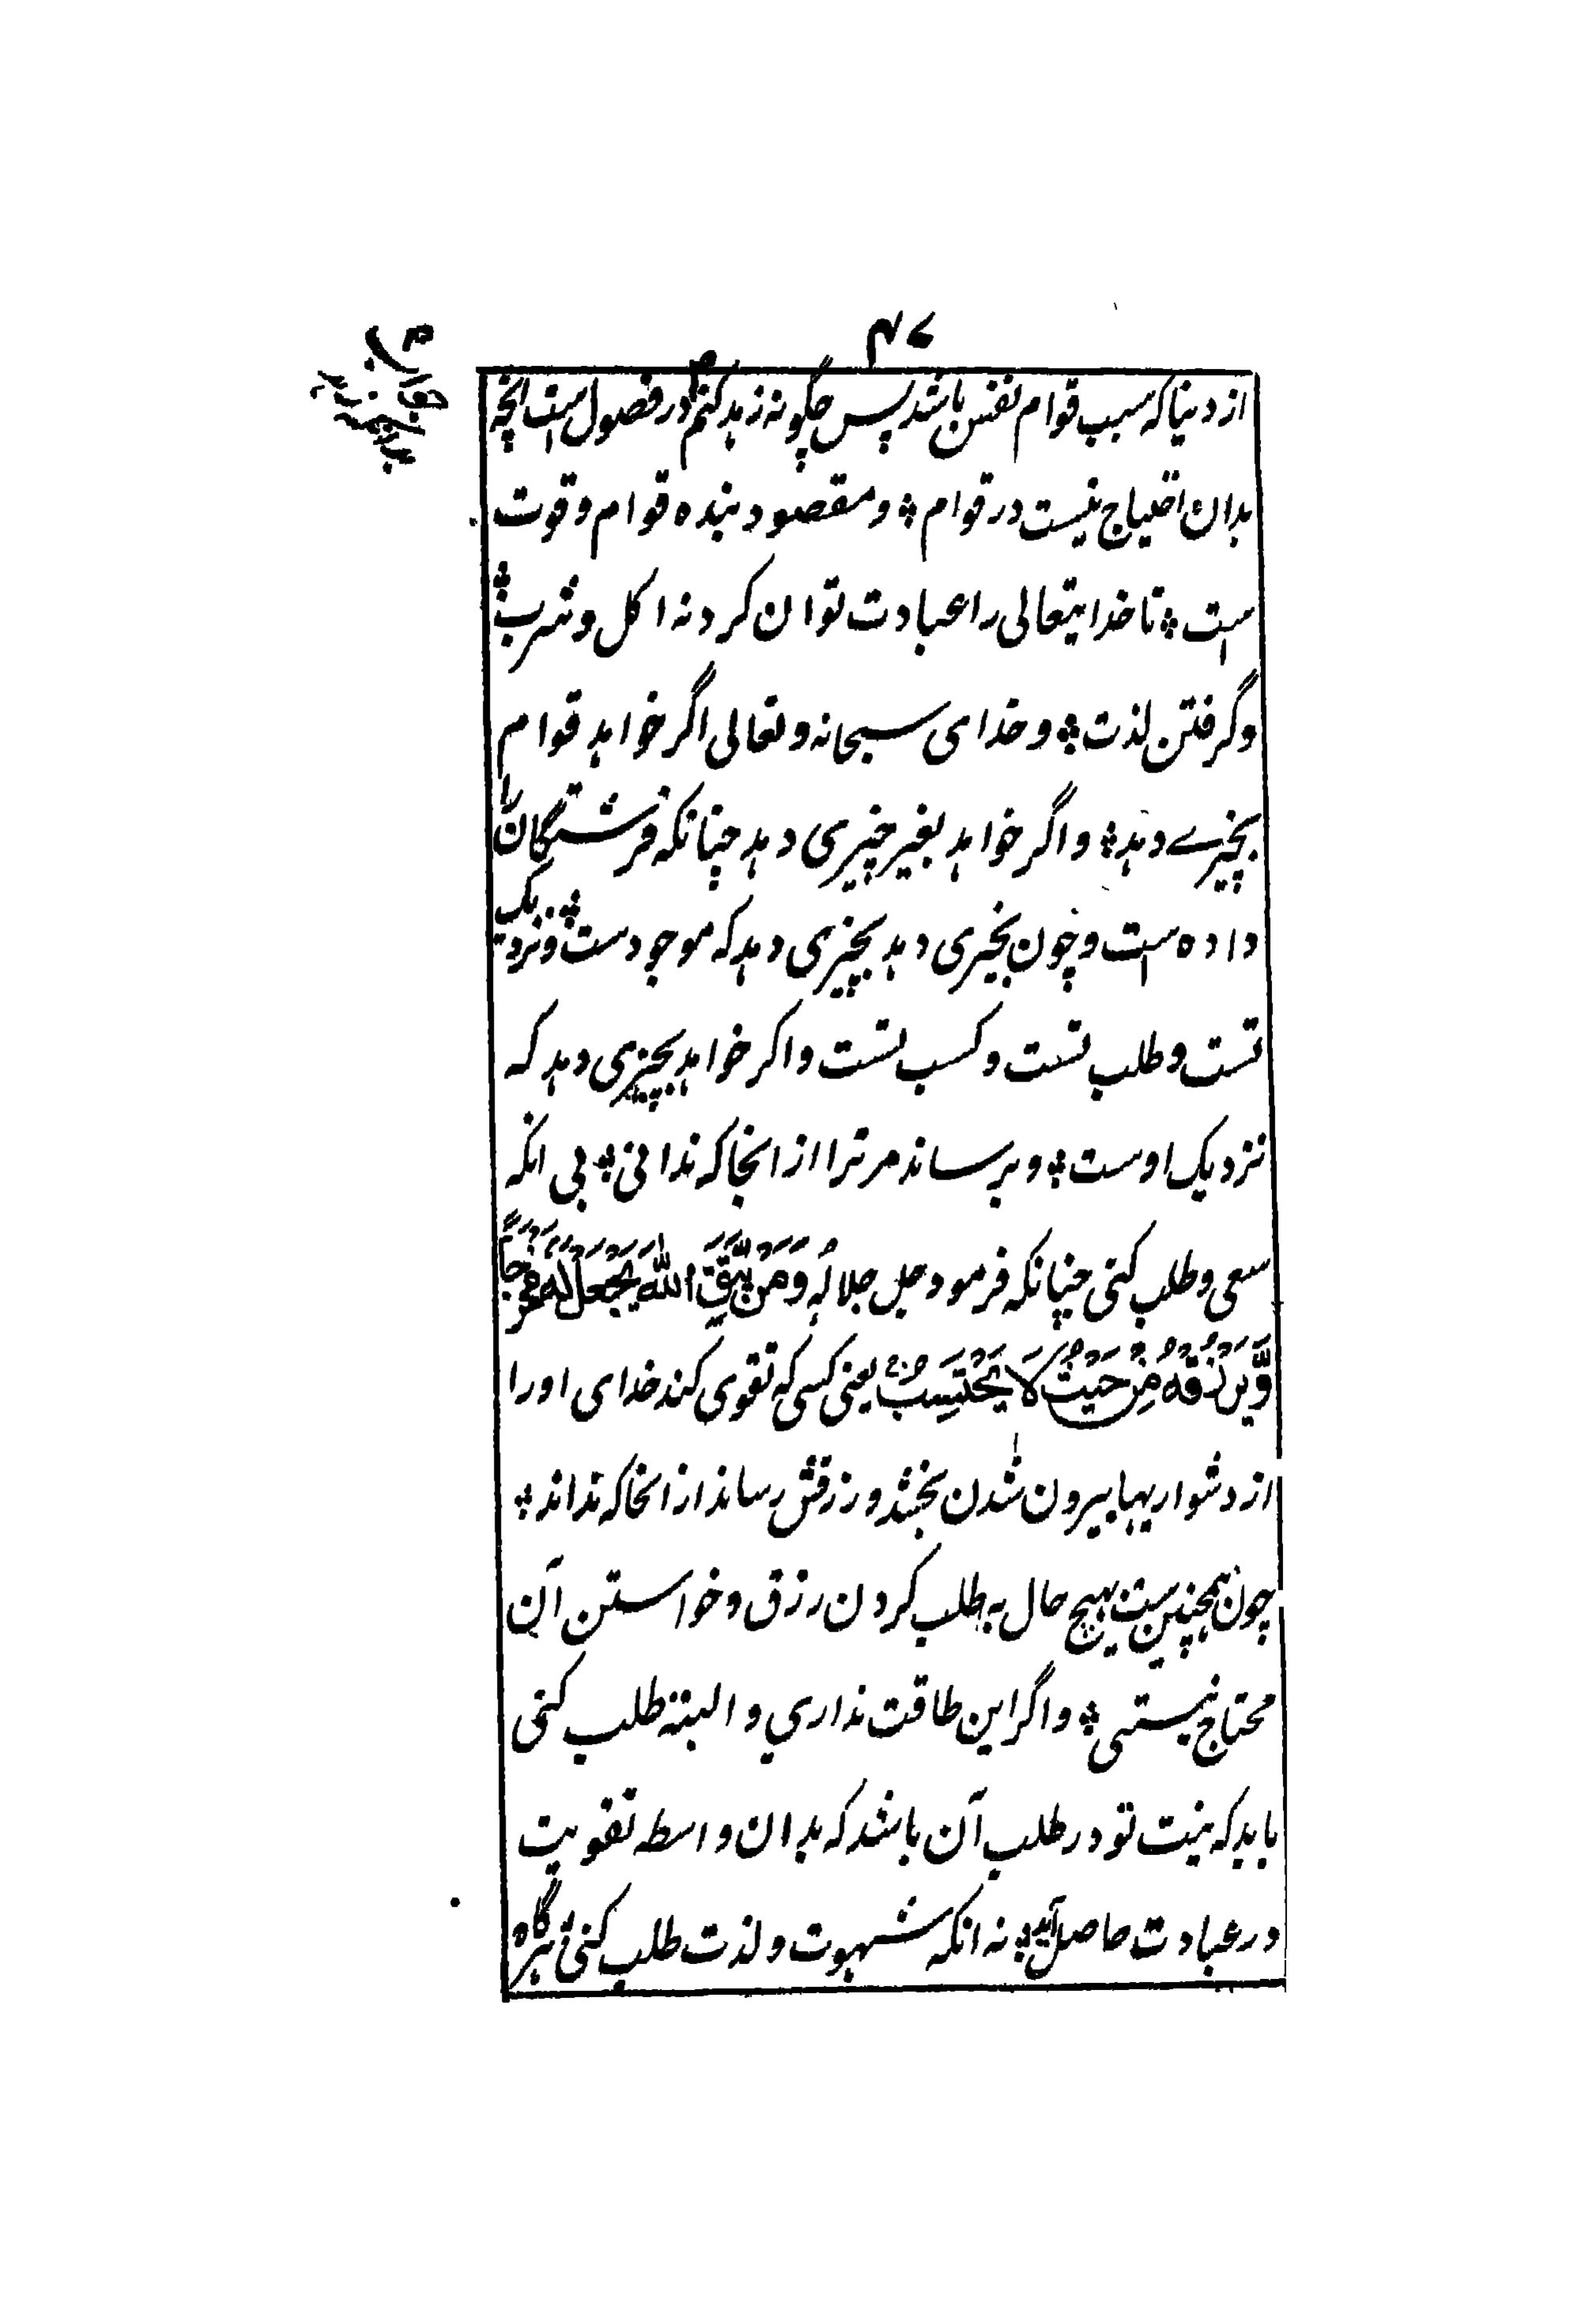 ۴۷
از دنیا که سبب قوام نفس باشد پس چگونه زهد کنم در فضول است انچه
بدان احتیاج نیست در قوام ؞ و مقصود بنده قوام و قوت
است ؞ تا خدایتعالی را عبادت توان کرد نه اکل و شرب ؞
و گرفتن لذت ؞ و خدای سبحانه و تعالی اگر خواهد قوام
بچیزے دهد ؞ و اگر خواهد بغیر چیزی دهد چنانکه فرشتگان را
داده است و چون بچیزی دهد بچیزی دهد که موجودست ؞ و نزدیک
تست و طلب تست و کسب تست و اکر خواهد بچیزی دهد که
نزدیک اوست ؞ و برساند مر ترا از انجا که ندانی ؞ بی انکه
سعی و طلب کنی چنانکه فرمود جل جلالُه وَمَنْ يَّتَّقِ اللّٰهَ يَجْعَلْ لَهُ مَخْرَجًا
وَّيَرْزُقْهُ مِنْ حَيْثُ لَا يَحْتَسِبُ یعنی کسی که تقوی کند خدای او را
از دشواریها بیرون شدن بخشد و رزقش رساند از انجا که نداند ؞
چون همچنین ست بهیچ حال به طلب کردن رزق و خواستن آن
محتاج نیستی ؞ و اگر این طاقت نداري و البته طلب کنی
باید که نیت تو در طلب آن باشد که بدان واسطه تقویت
در عبادت حاصل آید ؞ نه انکه شهوت و لذت طلب کنی ؞ هرگاه